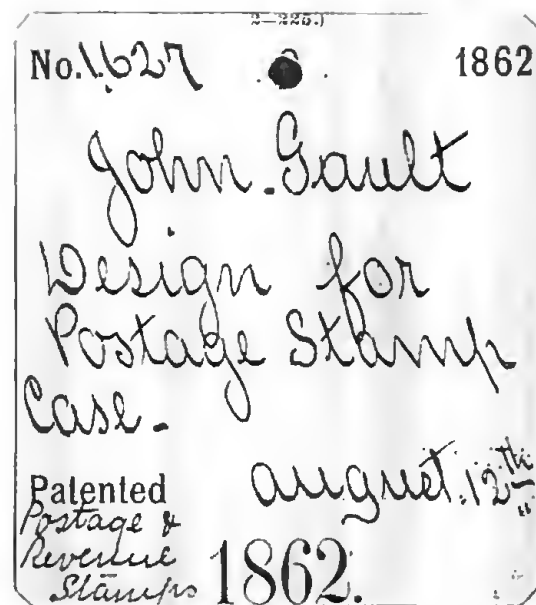 2—225.)
No. 1.627 1862
John Gault
Design for
Postage Stamp
Case.
Patented august 12th
Postage &
Revenue
Stamps 1862.